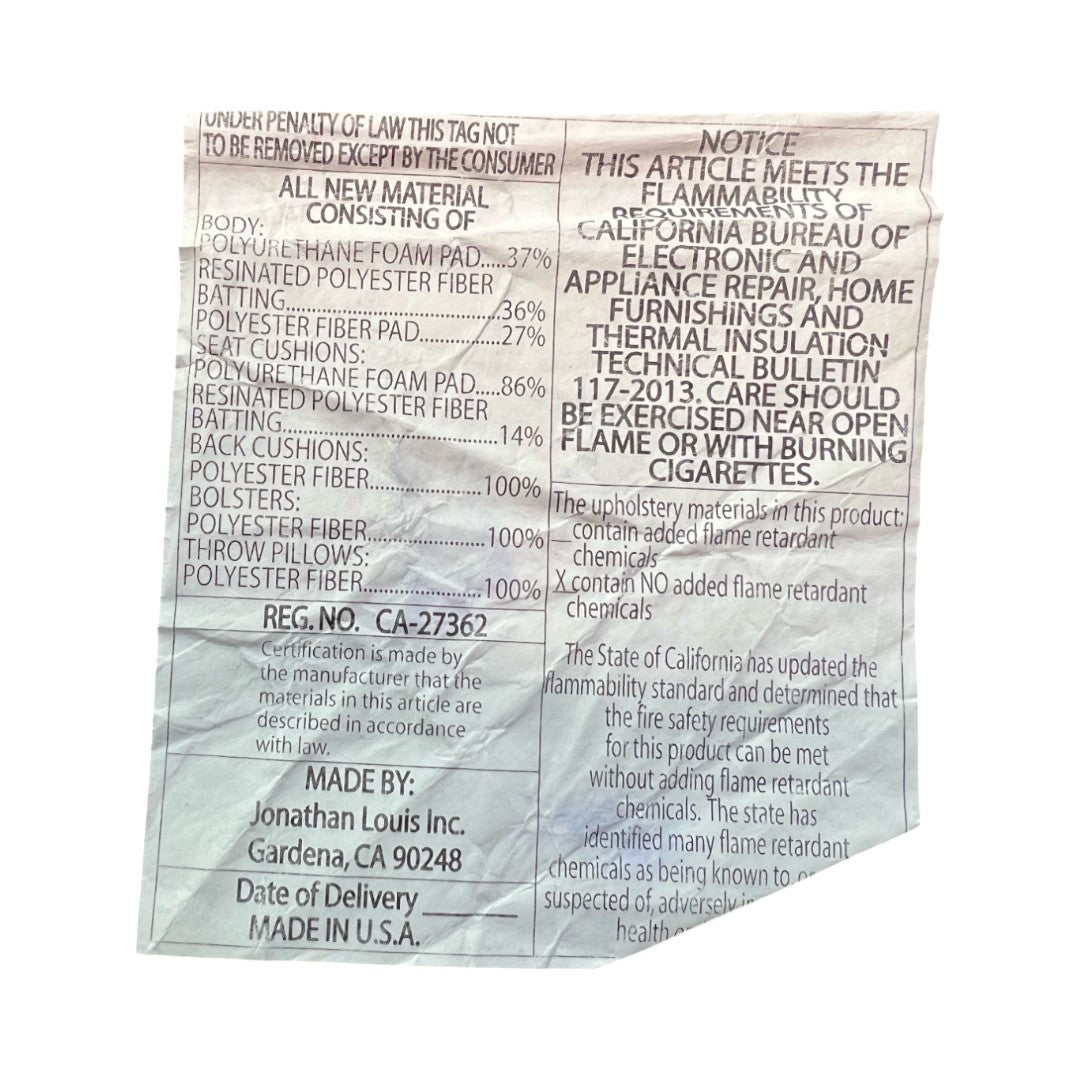 UNDER PENALTY OF LAW THIS TAG NOT
TO BE REMOVED EXCEPT BY THE CONSUMER
ALL NEW MATERIAL
CONSISTING OF
BODY:
POLYURETHANE FOAM PAD.....37%
RESINATED POLYESTER FIBER
BATTING................................36%
POLYESTER FIBER PAD...............27%
SEAT CUSHIONS:
POLYURETHANE FOAM PAD.....86%
RESINATED POLYESTER FIBER
BATTING................................14%
BACK CUSHIONS:
POLYESTER FIBER.....................100%
BOLSTERS:
POLYESTER FIBER.....................100%
THROW PILLOWS:
POLYESTER FIBER.....................100%
REG. NO. CA-27362
Certification is made by
the manufacturer that the
materials in this article are
described in accordance
with law.
MADE BY:
Jonathan Louis Inc.
Gardena, CA 90248
Date of Delivery ________
MADE IN U.S.A.
NOTICE
THIS ARTICLE MEETS THE
FLAMMABILITY
REQUIREMENTS OF
CALIFORNIA BUREAU OF
ELECTRONIC AND
APPLIANCE REPAIR, HOME
FURNISHINGS AND
THERMAL INSULATION
TECHNICAL BULLETIN
117-2013. CARE SHOULD
BE EXERCISED NEAR OPEN
FLAME OR WITH BURNING
CIGARETTES.
The upholstery materials in this product:
__contain added flame retardant
chemicals
X contain NO added flame retardant
chemicals
The State of California has updated the
flammability standard and determined that
the fire safety requirements
for this product can be met
without adding flame retardant
chemicals. The state has
identified many flame retardant
chemicals as being known to,
suspected of, adversely
health